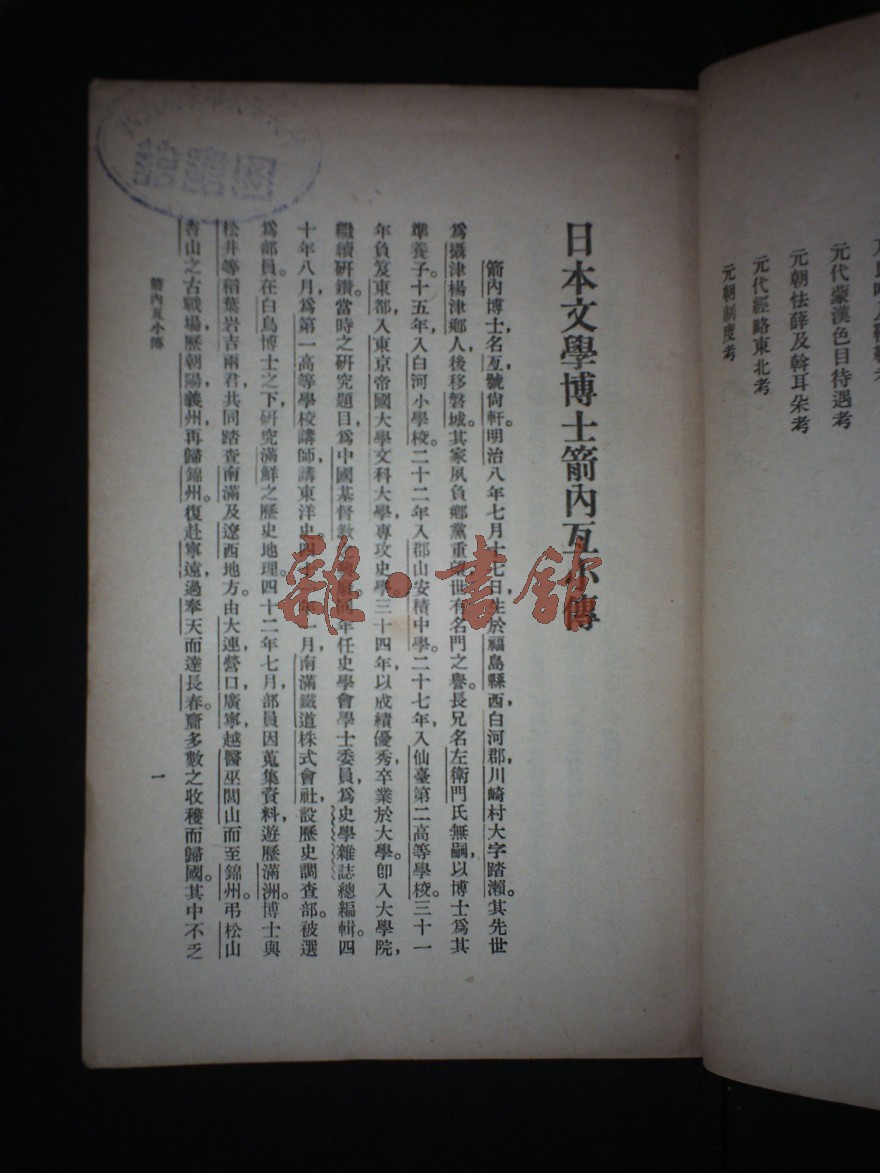 元代蒙漢色目待遇考
元朝怯薛及斡耳朵考
元代經略東北考
元朝制度考
日本文學博士箭內亙小傳
箭內博士，名亙，號尙軒。明治八年七月十七日生於福島縣西白河郡川崎村大字踏瀨。其先世
爲攝津楊津鄉人，後移磐城。其家夙負鄉黨重望，世有名門之譽。長兄名左衛門氏無嗣，以博士爲其
準養子。十五年，入白河小學校。二十二年，入郡山安積中學。二十七年，入仙臺第二高等學校。三十一
年，負笈東都，入東京帝國大學文科大學，專攻史學。三十四年，以成績優秀，卒業於大學。卽入大學院，
繼續研鑽。當時之研究題目，爲中國基督教 同年任史學會學士委員，爲史學雜誌總編輯。四
十年八月，爲第一高等學校講師，講東洋史。四十 月，南滿鐵道株式會社設歷史調查部。被選
爲部員，在白鳥博士之下，研究滿鮮之歷史地理。四十二年七月，部員因蒐集資料，遊歷滿洲。博士與
松井等稻葉岩吉兩君，共同踏查南滿及遼西地方。由大連，營口，廣寧，越醫巫閭山而至錦州。弔松山
杏山之古戰場，歷朝陽，義州，再歸錦州。復赴寧遠，過奉天而達長春。齎多數之收穫而歸國。其中不乏
箭內亙小傳
一
圖書館
雜·書館